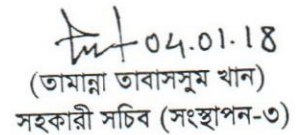 04.01.18
(তামান্না তাবাসসুম খান)
সহকারী সচিব (সংস্থাপন-৩)